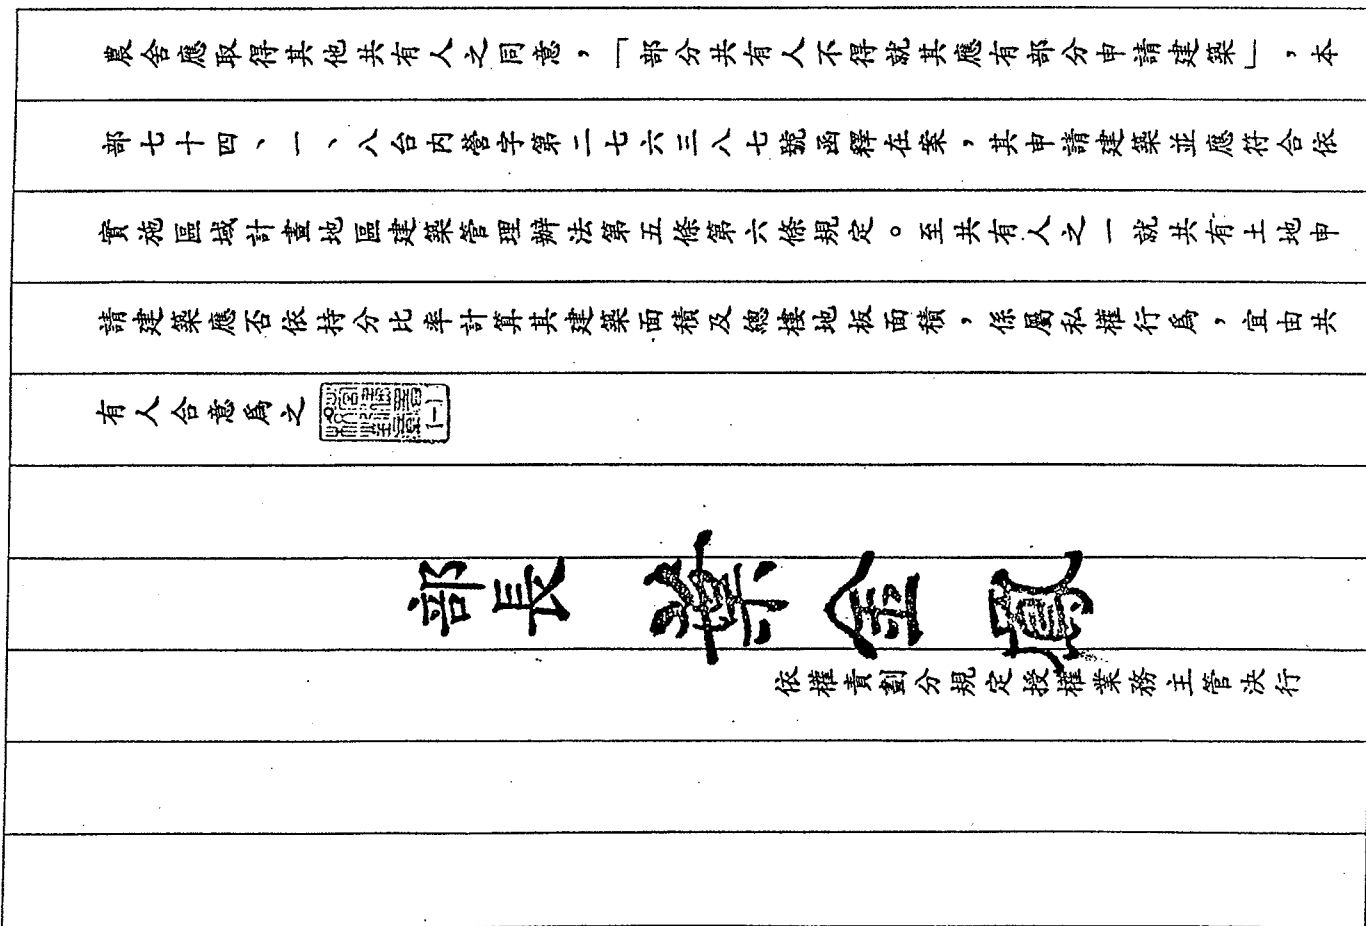 農舍應取得其他共有人之同意，「部分共有人不得就其應有部分申請建築」，本
部七十四、一、八台內營字第二七六三八七號函釋在案，其申請建築並應符合依
實施區域計畫地區建築管理辦法第五條第六條規定。至共有人之一就共有土地申
請建築應否依持分比率計算其建築面積及總樓地板面積，係屬私權行為，宜由共
有人合意為之
部長 葉金鳳
依權責劃分規定授權業務主管決行